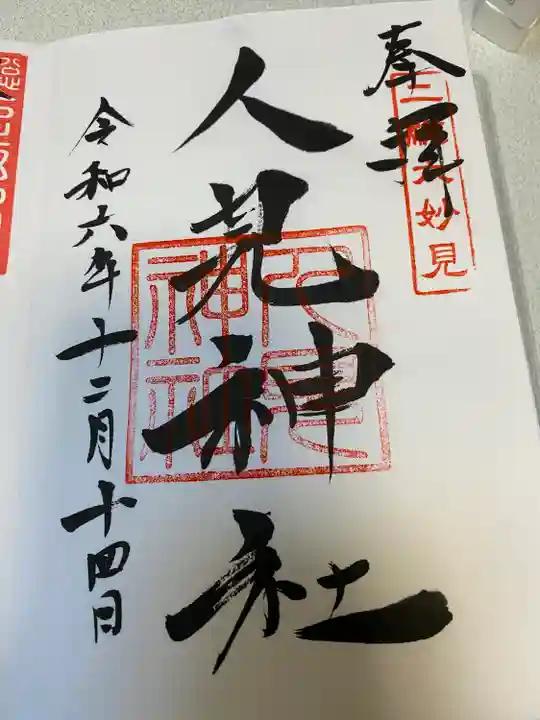 奉拝
三大妙見
人見神社
人見神社
令和六年十二月十四日